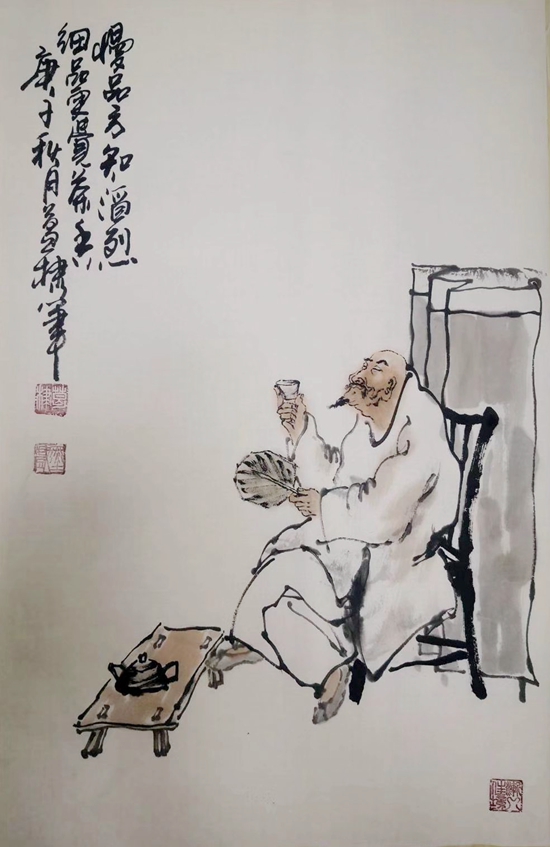 慢品方知酒烈
细品更觉茶香
庚子秋月